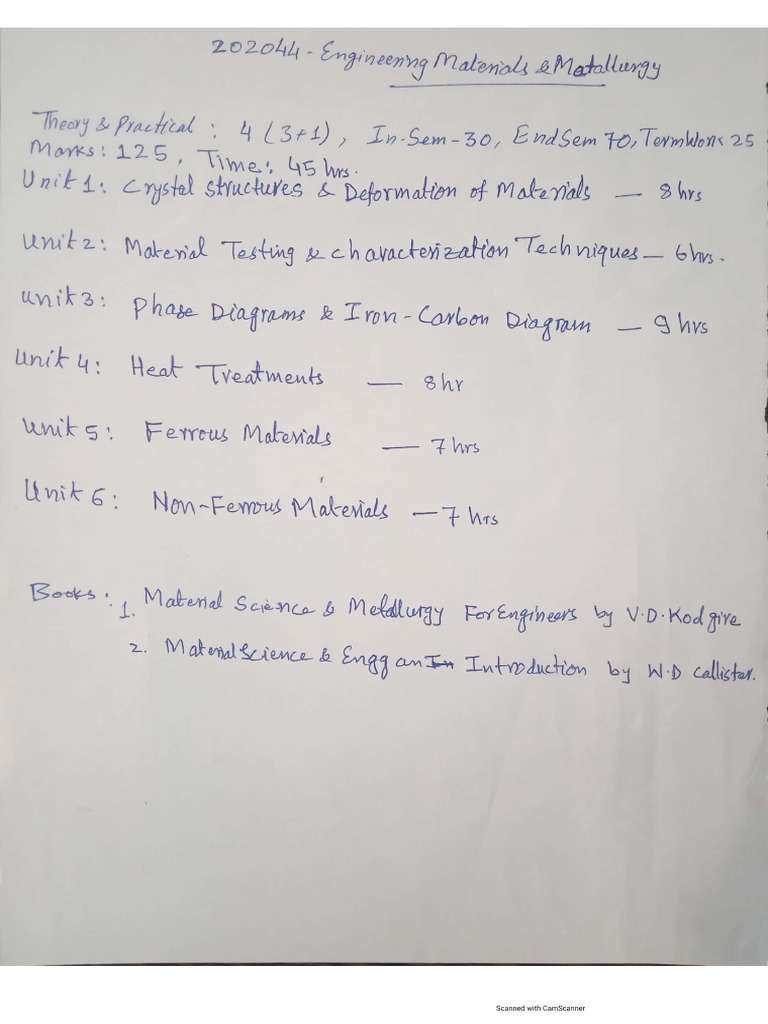 202044 - Engineering Materials & Metallurgy
Theory & Practical : 4 (3+1), In-Sem-30, EndSem 70, TermWork 25
Marks: 125, Time: 45 hrs.
Unit 1: Crystal Structures & Deformation of Materials — 8 hrs
Unit 2: Material Testing & Characterization Techniques — 6 hrs.
Unit 3: Phase Diagrams & Iron-Carbon Diagram — 9 hrs
Unit 4: Heat Treatments — 8 hr
Unit 5: Ferrous Materials — 7 hrs
Unit 6: Non-Ferrous Materials — 7 hrs
Books: 1. Material Science & Metallurgy For Engineers by V.D. Kodgire
2. Material Science & Engg an In Introduction by W.D Callister.
Scanned with CamScanner